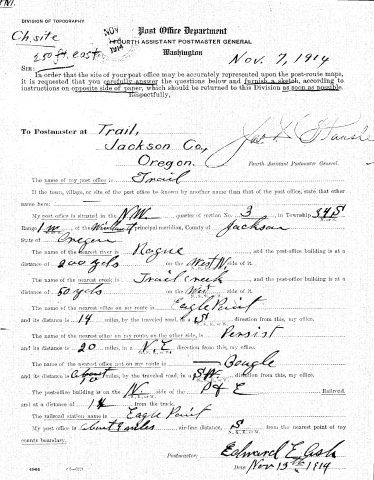 DIVISION OF TOPOGRAPHY
Ch. site
250 ft. east
NOV 1914
Post Office Department
FOURTH ASSISTANT POSTMASTER GENERAL
Washington
Nov. 7, 1914
SIR:
In order that the site of your post office may be accurately represented upon the post-route maps,
it is requested that you carefully answer the questions below and furnish a sketch, according to
instructions on opposite side of paper, which should be returned to this Division as soon as possible.
Respectfully,
To Postmaster at Trail,
Jackson Co,
Oregon.
Fourth Assistant Postmaster General.
The name of my post office is Trail
If the town, village, or site of the post office be known by another name than that of the post office, state that other
name here:
My post office is situated in the N.W. quarter of section No. 3, in Township 34 S
Range 1 W, of the principal meridian, County of Jackson
State of Oregon
The name of the nearest river is Rogue, and the post-office building is at a
distance of 200 yds on the West N. side of it.
The name of the nearest creek is Trail creek and the post-office building is at a
distance of 50 yds on the West side of it.
The name of the nearest office on my route is Eagle Point
and its distance is 14 miles, by the traveled road, in a S direction from this, my office.
The name of the nearest office on my route, on the other side, is Persist
and its distance is 20 miles, in a N. E direction from this, my office.
The name of the nearest office not on my route is
and its distance is about miles, by the traveled road, in a S.W. direction from this, my office.
The post-office building is on the W. side of the P & E Railroad,
and at a distance of from the track.
The railroad station name is Eagle Point
My post office is about miles, air-line distance, S from the nearest point of my
county boundary.
Postmaster: Edward E. Ash
Date Nov 13th 1914